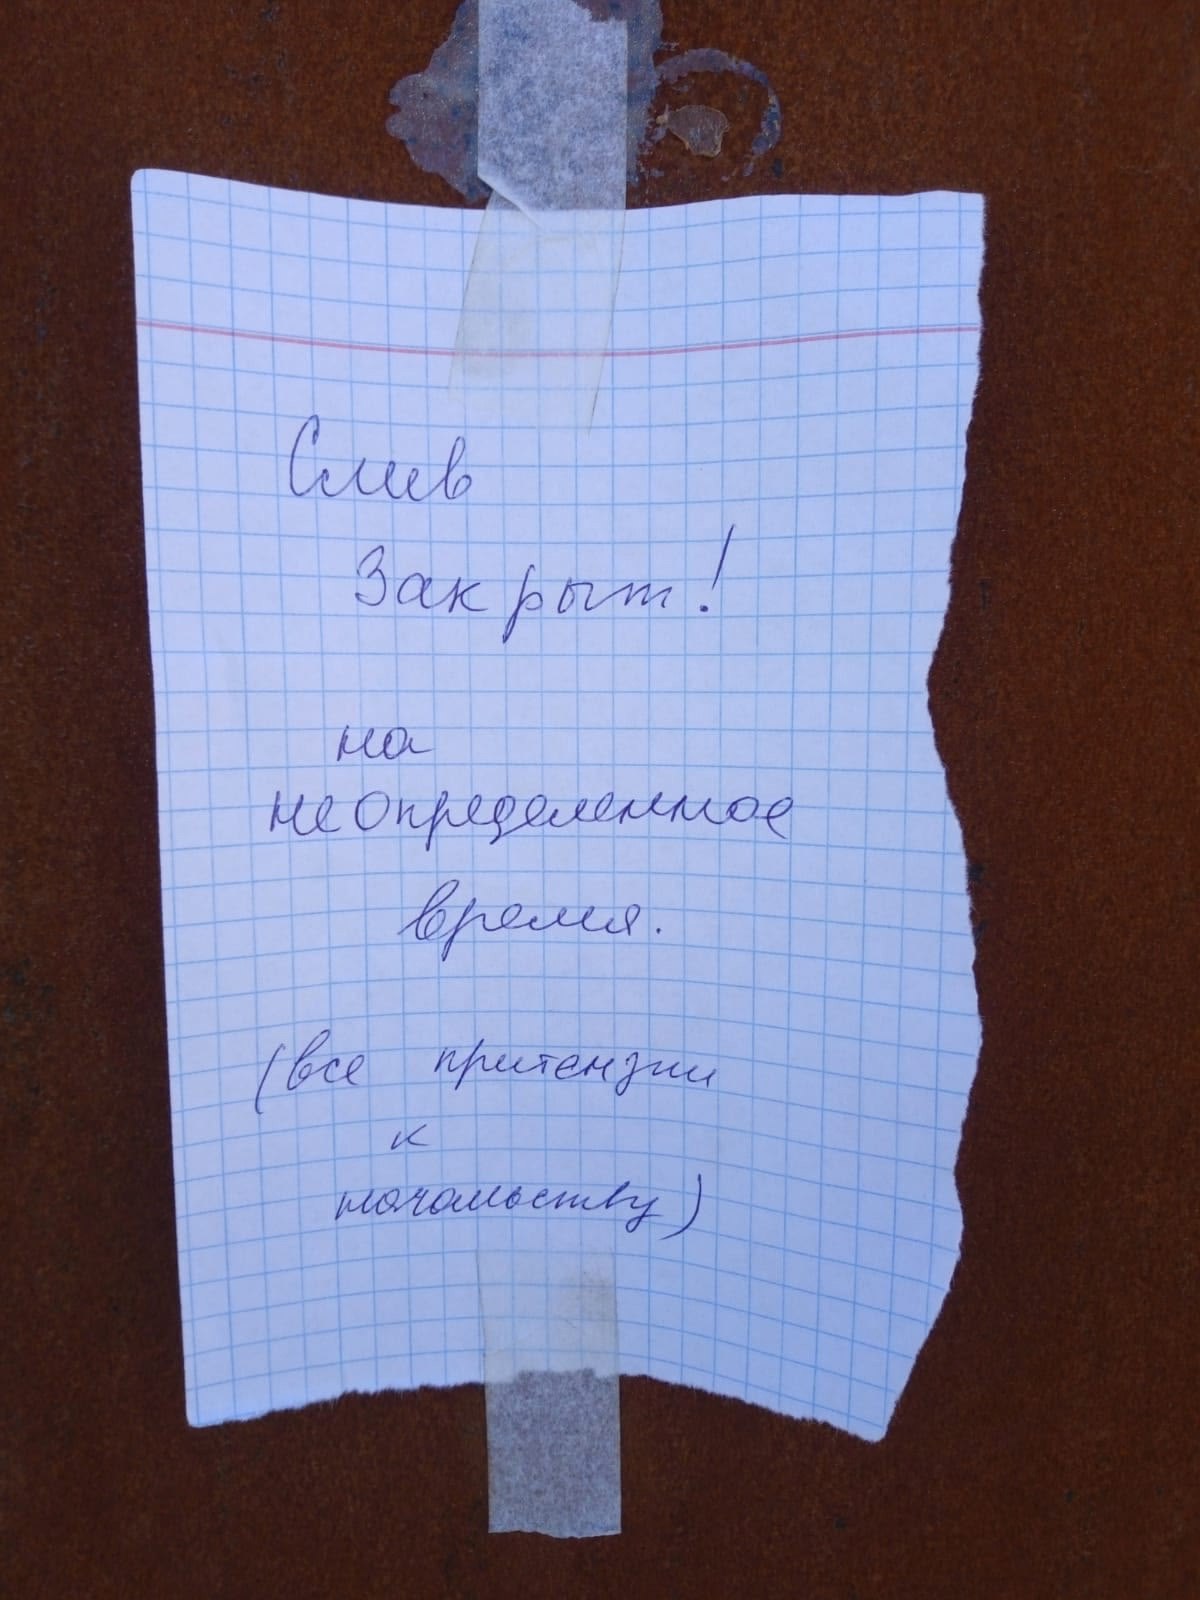 Слив
Закрыт!
на
неопределенное
время.
(все притензии
к
начальству)